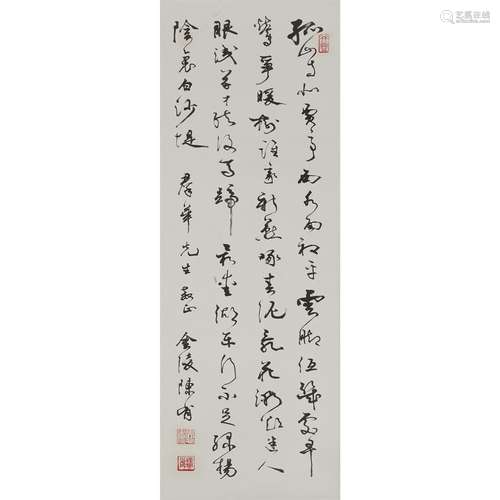 孤山寺北賈亭西水面初平雲脚低幾處早
鶯爭暖樹誰家新燕啄春泥亂花漸欲迷人
眼淺草才能没馬蹄最愛湖東行不足綠楊
陰裏白沙堤 羣華先生教正 金陵陳